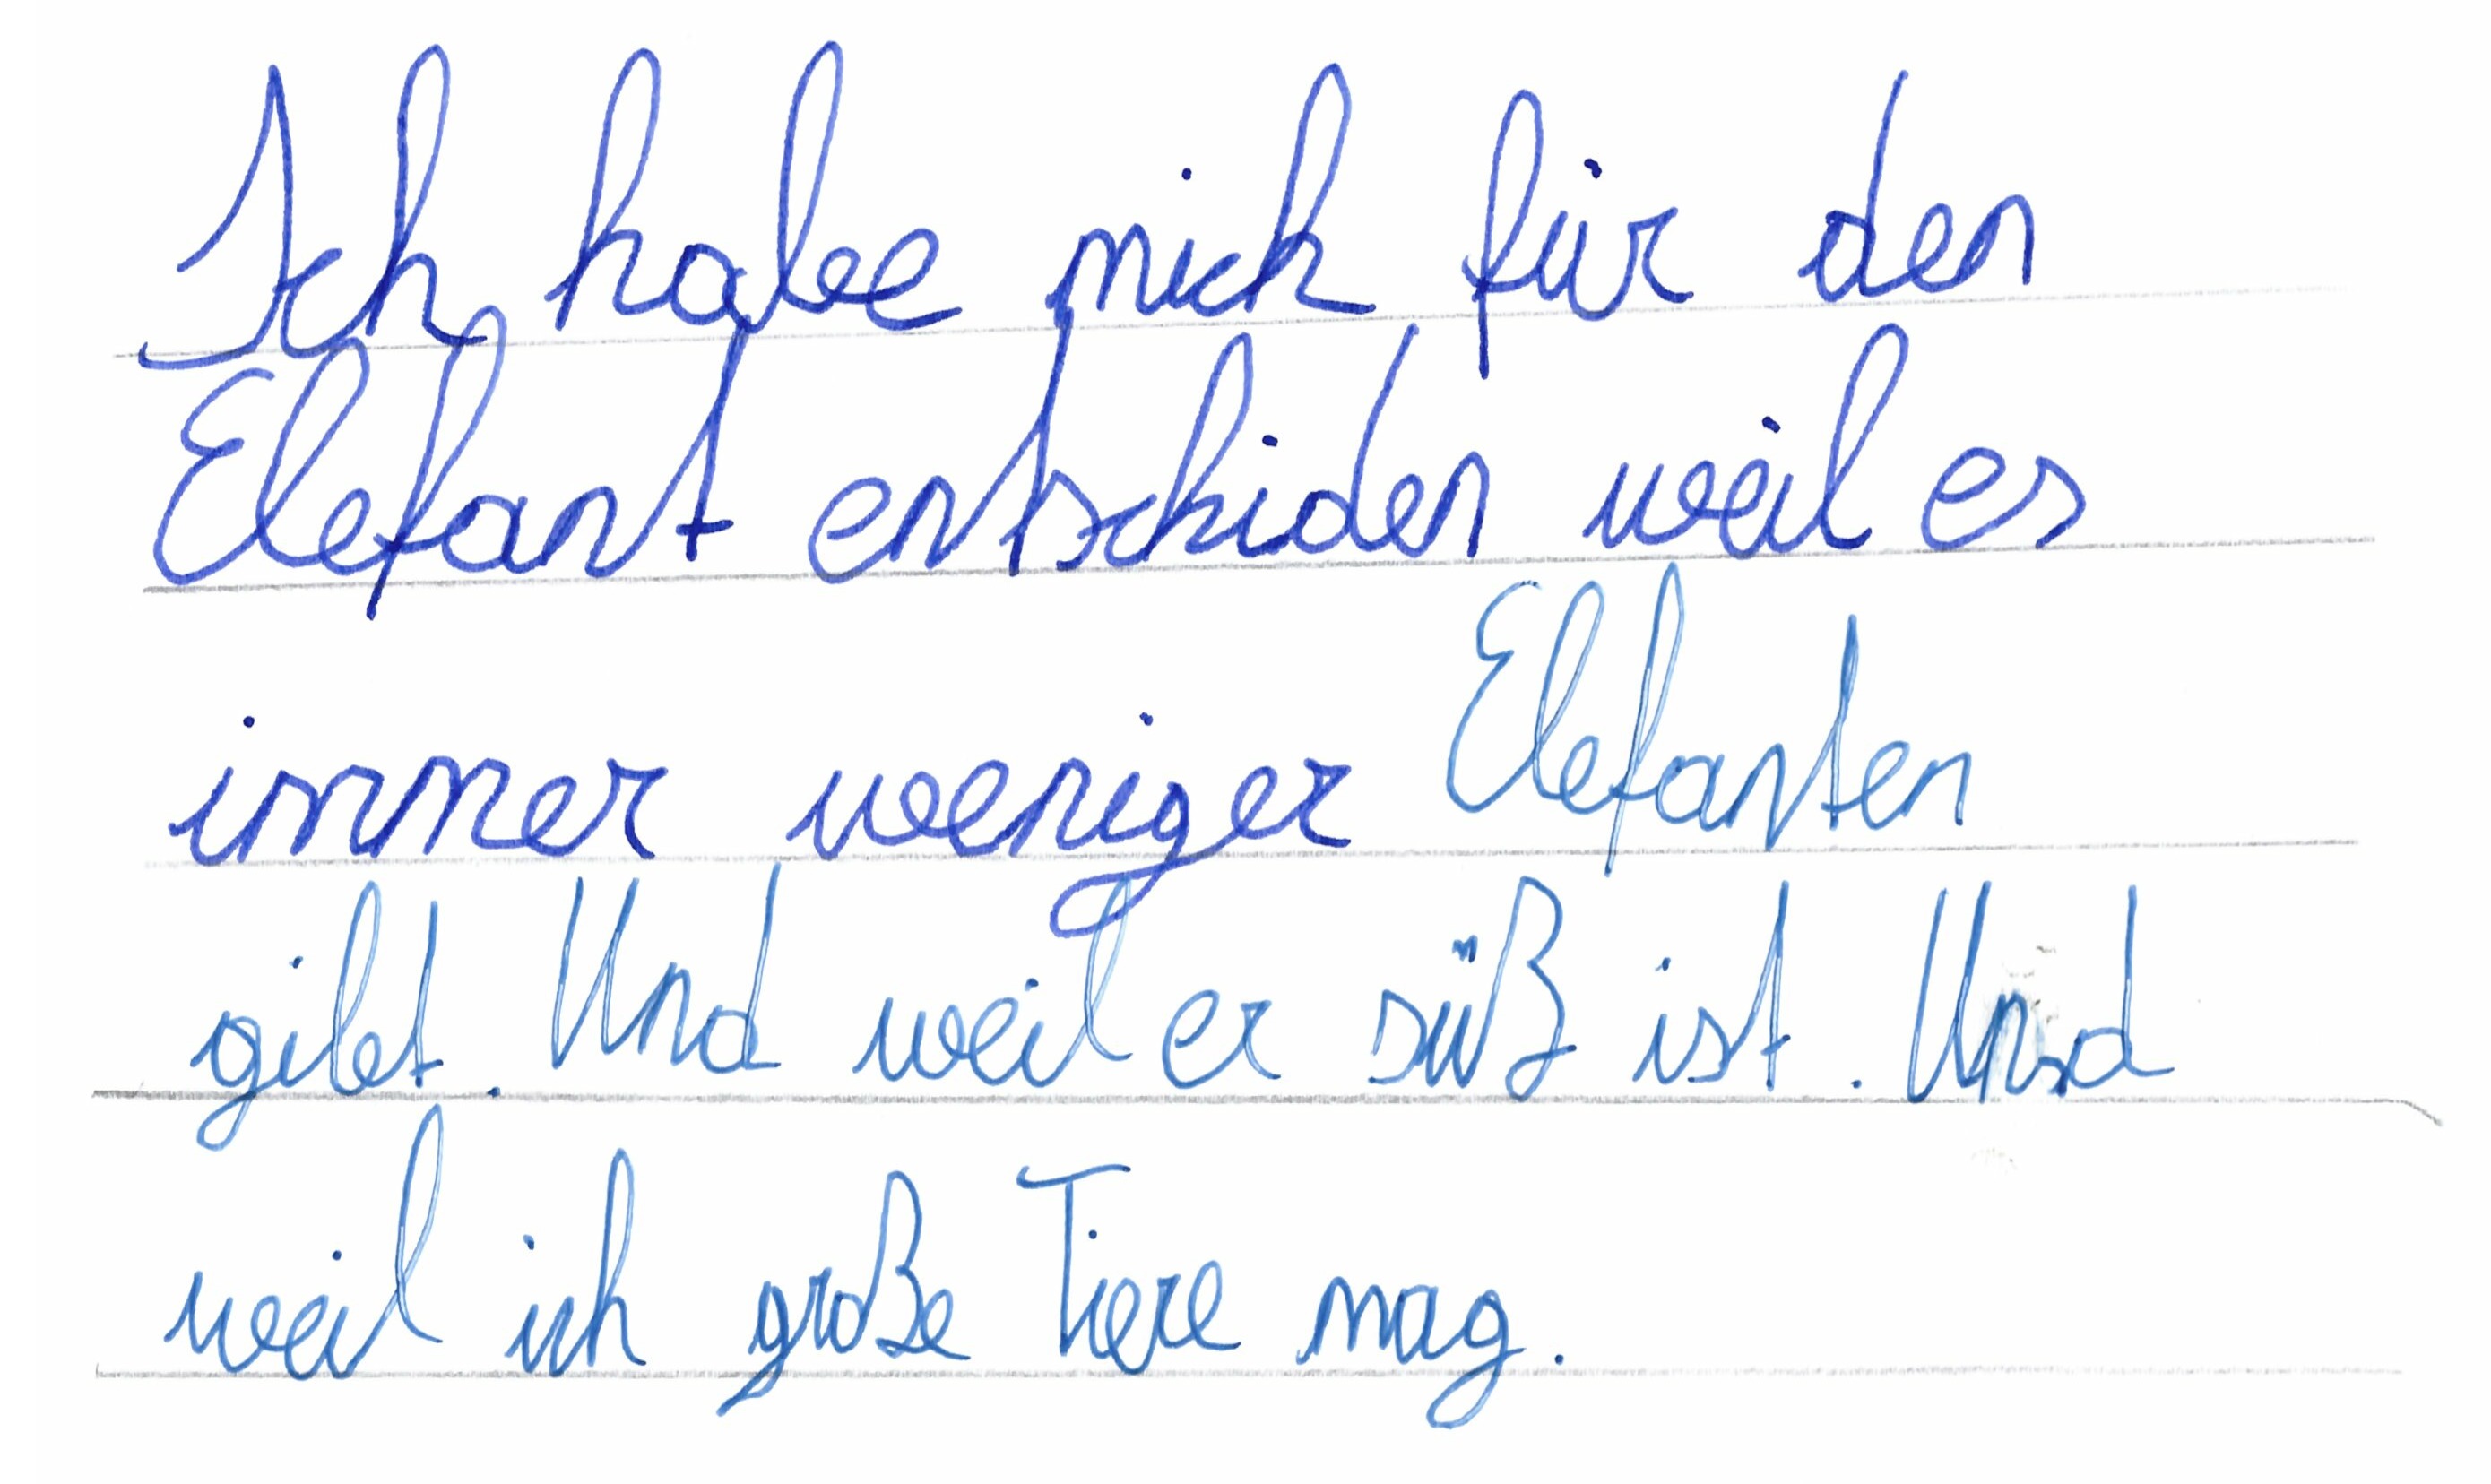 Ich habe mich für den
Elefant entschiden weil es
immer weniger Elefanten
gibt. Und weil er süß ist. Und
weil ich große Tiere mag.